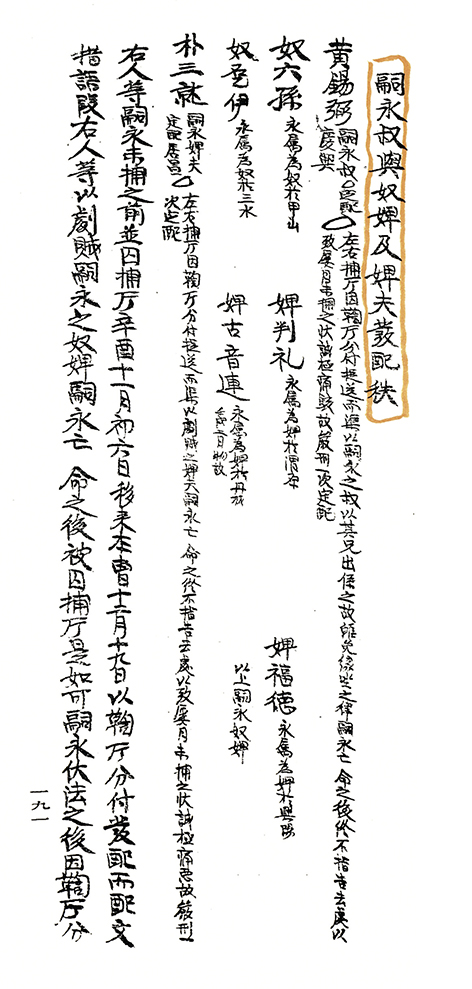 嗣永叔與奴婢及婢夫發配秩
黃錫弼 嗣永叔 定配慶興 左右捕厅因鞫厅分付捉送而渠以嗣永之叔以其兄出係之故雖免緣坐之律嗣永亡 命之後終不指告去處以
致屡月未捕之状萬極痛駭故嚴刑一次定配
奴六孫 永属為奴於甲山 婢判礼 永属為婢於渭原 婢福德 永属為婢於興陽
奴 伊 永属為奴於三水 婢古音連 永属為婢於丹 以上嗣永奴婢
朴三就 嗣永婢夫 定配 左右捕厅因鞫厅分付捉送而渠以劇賊之婢夫嗣永亡 命之後不指告去處以致屡月未捕之状 極痛惡故嚴刑一
次定配
右人等嗣永未捕之前並囚捕厅辛酉十一月初六日移来本曹十二月十九日以鞫厅分付發配而配文
措語段右人等以劇賊嗣永之奴婢嗣永亡 命之後被囚捕厅是如可嗣永伏法之後因鞫厅分
一九一